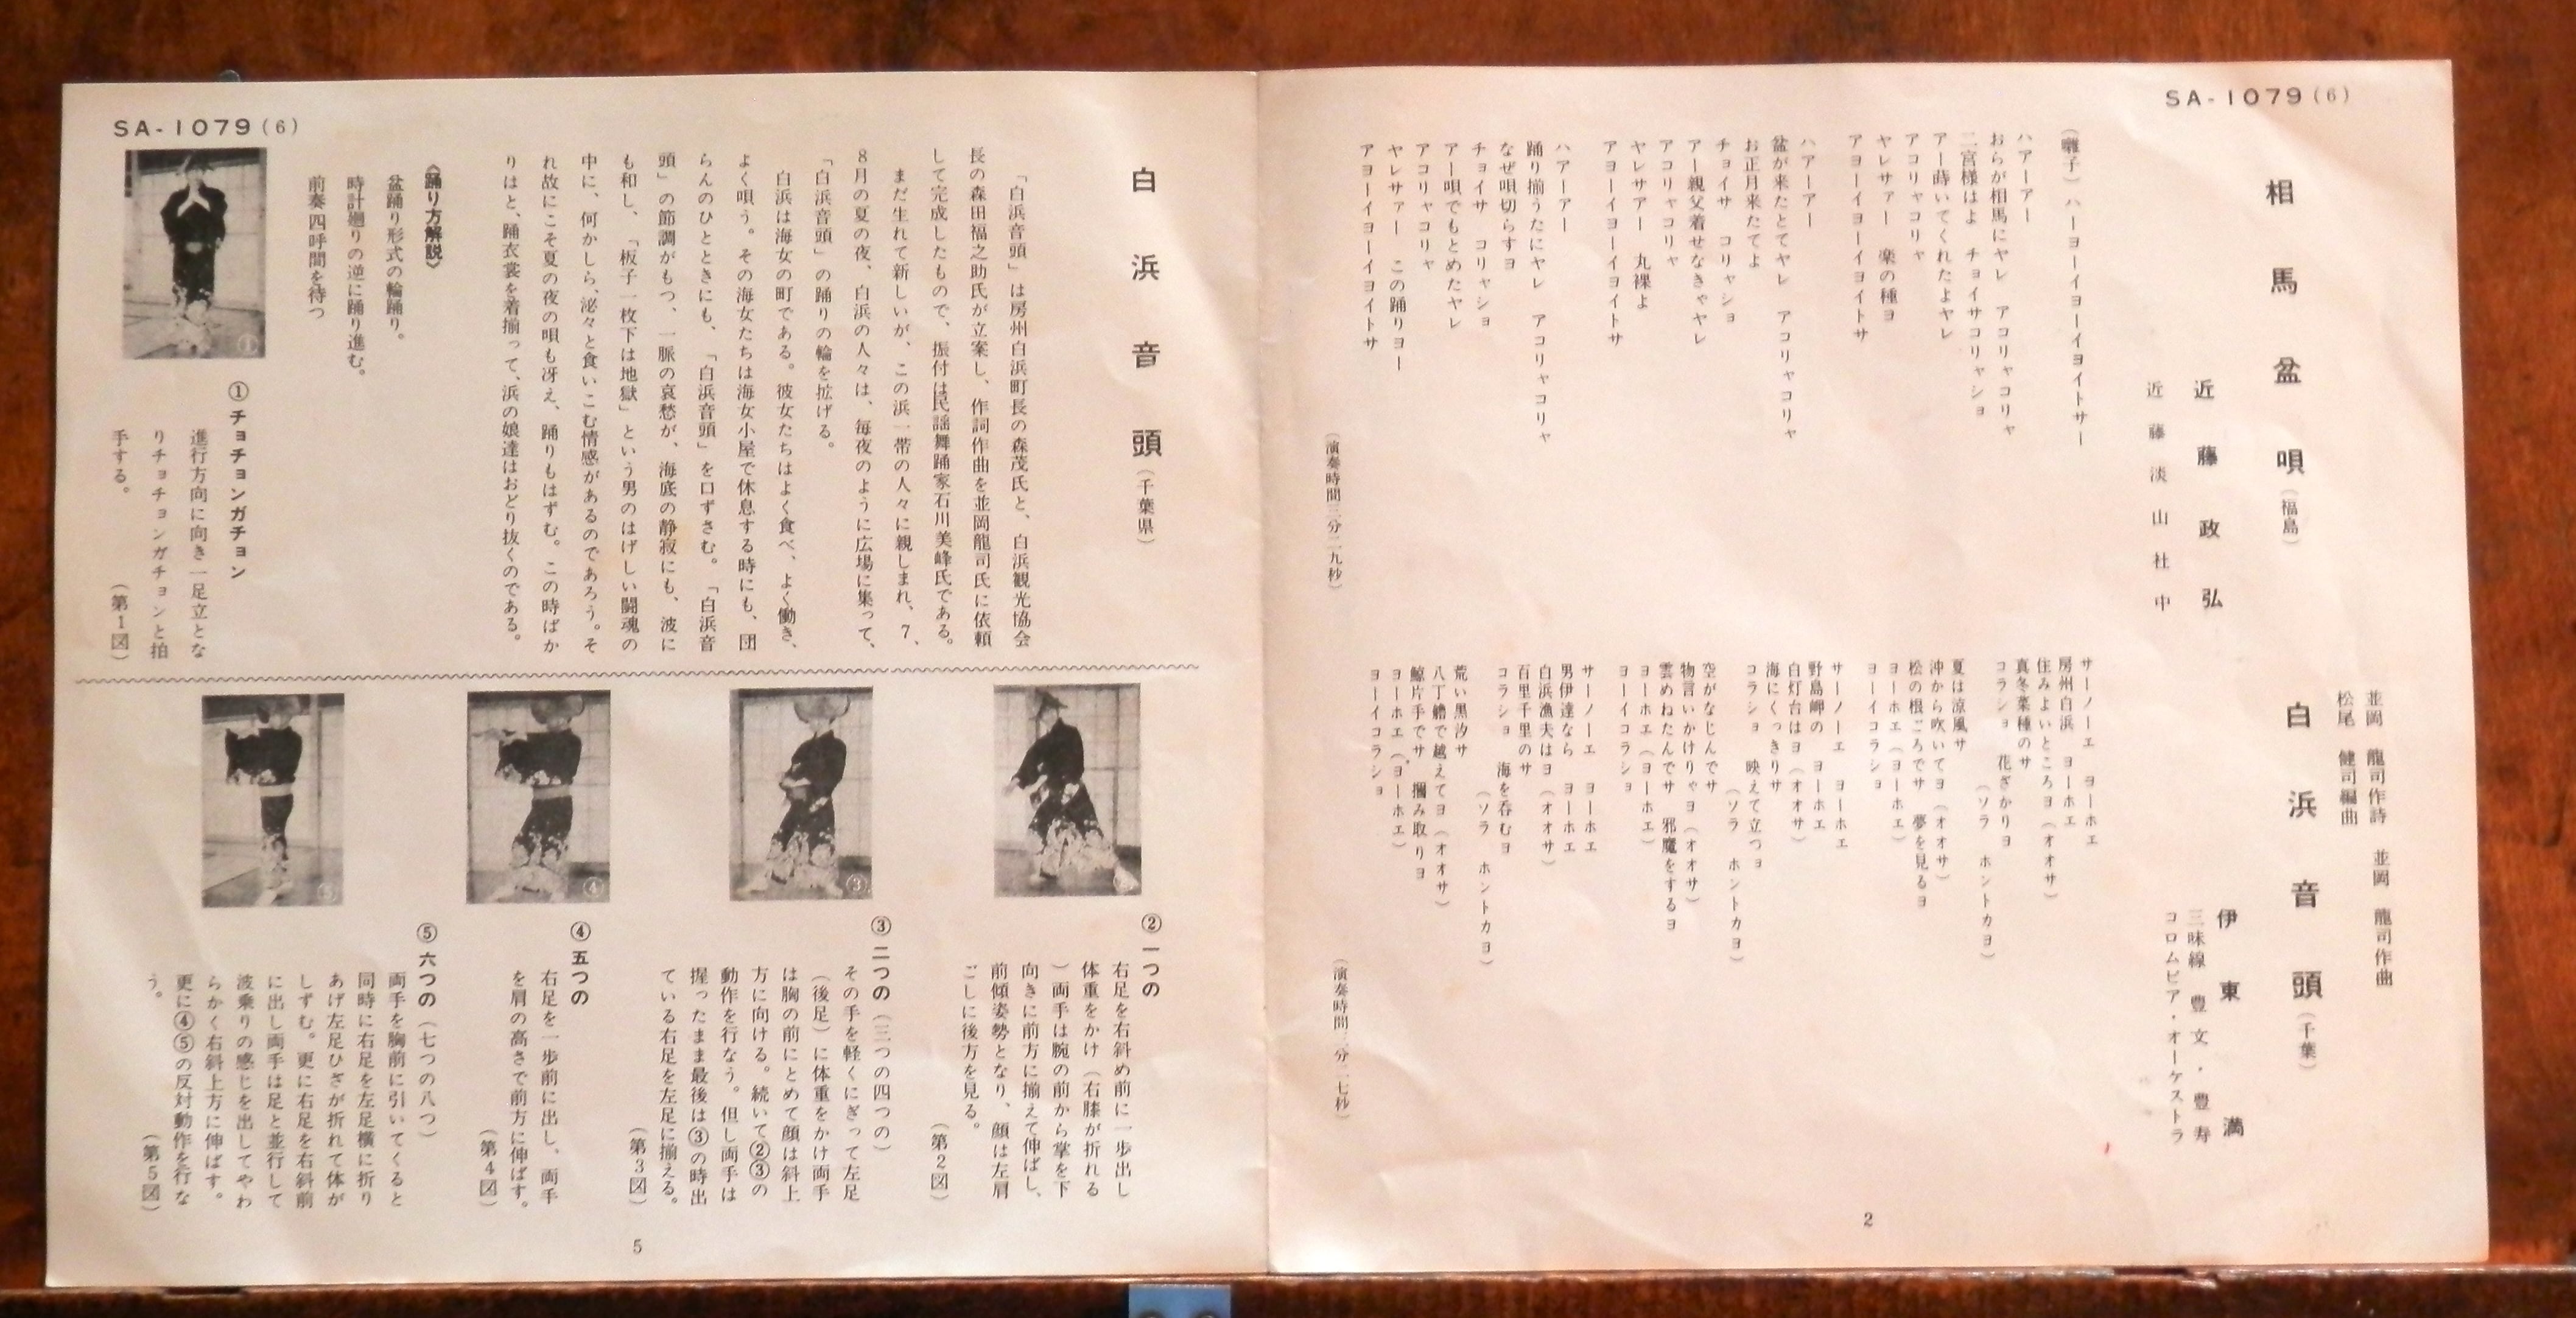 SA-1079(6)
相馬盆唄(福島)
近藤政弘
近藤淡山社中
(囃子)ハーヨーイヨーイヨイトサー
ハアーアー
おらが相馬にヤレ アコリャコリャ
二宮様はよ チョイサコリャショ
アー蒔いてくれたよヤレ
アコリャコリャ
ヤレサァー 楽の種ヨ
アヨーイヨーイヨイトサ
ハアーアー
盆が来たとてヤレ アコリャコリャ
お正月来たてよ
チョイサ コリャショ
アー親父着せなきゃヤレ
アコリャコリャ
ヤレサアー 丸裸よ
アヨーイヨーイヨイトサ
ハアーアー
踊り揃うたにヤレ アコリャコリャ
なぜ唄切らすヨ
チョイサ コリャショ
アー唄でもとめたヤレ
アコリャコリャ
ヤレサァー この踊りヨー
アヨーイヨーイヨイトサ
(演奏時間三分二九秒)
並岡 龍司作詩 並岡 龍司作曲
松尾 健司編曲
白浜音頭(千葉)
伊東満
三味線 豊文・豊寿
コロムビア・オーケストラ
サーノーエ ヨーホエ
房州白浜 ヨーホエ
住みよいところヨ(オオサ)
真冬菜種のサ
コラショ 花ざかりヨ
(ソラ ホントカヨ)
夏は涼風サ
沖から吹いてヨ(オオサ)
松の根ごろでサ 夢を見るヨ
ヨーホエ(ヨーホエ)
ヨーイコラショ
サーノーエ ヨーホエ
野島岬の ヨーホエ
白灯台はヨ(オオサ)
海にくっきりサ
コラショ 映えて立つヨ
(ソラ ホントカヨ)
空がなじんでサ
物言いかけりゃヨ(オオサ)
雲めねたんでサ 邪魔をするヨ
ヨーホエ(ヨーホエ)
ヨーイコラショ
サーノーエ ヨーホエ
男伊達なら ヨーホエ
白浜漁夫はヨ(オオサ)
百里千里のサ
コラショ 海を呑むヨ
(ソラ ホントカヨ)
荒い黒汐サ
八丁艪で越えてヨ(オオサ)
鯨片手でサ 掴み取りヨ
ヨーホエ(ヨーホエ)
ヨーイコラショ
(演奏時間三分二七秒)
2
SA-1079(6)
白浜音頭(千葉県)
「白浜音頭」は房州白浜町長の森茂氏と、白浜観光協会
長の森田福之助氏が立案し、作詞作曲を並岡龍司氏に依頼
して完成したもので、振付は民謡舞踊家石川美峰氏である。
まだ生れて新しいが、この浜一帯の人々に親しまれ、7、
8月の夏の夜、白浜の人々は、毎夜のように広場に集って、
「白浜音頭」の踊りの輪を拡げる。
白浜は海女の町である。彼女たちはよく食べ、よく働き、
よく唄う。その海女たちは海女小屋で休息する時にも、団
らんのひとときにも、「白浜音頭」を口ずさむ。「白浜音
頭」の節調がもつ、一脈の哀愁が、海底の静寂にも、波に
も和し、「板子一枚下は地獄」という男のはげしい闘魂の
中に、何かしら、泌々と食いこむ情感があるのであろう。そ
れ故にこそ夏の夜の唄も冴え、踊りもはずむ。この時ばか
りはと、踊衣裳を着揃って、浜の娘達はおどり抜くのである。
《踊り方解説》
盆踊り形式の輪踊り。
時計廻りの逆に踊り進む。
前奏四呼間を待つ
①
① チョチョンガチョン
進行方向に向き一足立とな
りチョチョンガチョンと拍
手する。
(第1図)
② 一つの
右足を右斜め前に一歩出し
体重をかけ(右膝が折れる
)両手は腕の前から掌を下
向きに前方に揃えて伸ばし、
前傾姿勢となり、顔は左肩
ごしに後方を見る。
(第2図)
③
③ 二つの(三つの四つの)
その手を軽くにぎって左足
(後足)に体重をかけ両手
は胸の前にとめて顔は斜上
方に向ける。続いて②③の
動作を行なう。但し両手は
握ったまま最後は③の時出
ている右足を左足に揃える。
(第3図)
④
④ 五つの
右足を一歩前に出し、両手
を肩の高さで前方に伸ばす。
(第4図)
⑤ 六つの(七つの八つ)
両手を胸前に引いてくると
同時に右足を左足横に折り
あげ左足ひざが折れて体が
しずむ。更に右足を右斜前
に出し両手は足と並行して
波乗りの感じを出してやわ
らかく右斜上方に伸ばす。
更に④⑤の反対動作を行な
う。
(第5図)
5